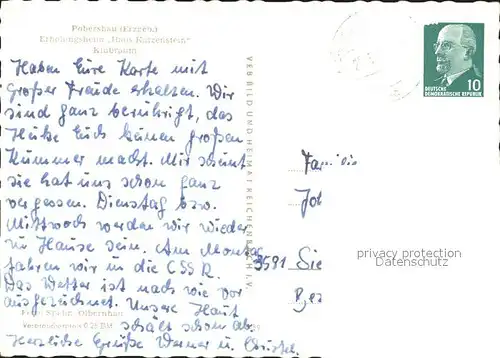 Pobershau (Erzgeb.)
Erholungsheim „Haus Katzenstein"
Klubraum
Haben Eure Karte mit
großer Freude erhalten. Wir
sind ganz beruhigt, das
Heike Euch keinen großen
Kummer macht. Mir scheint
sie hat uns schon ganz
vergessen. Dienstag bzw.
Mittwoch werden wir wieder
zu Hause sein. Am Montag
fahren wir in die CSSR.
Das Wetter ist nach wie vor
ausgezeichnet. Unsere Haut
schält schon ab
Herzliche Grüße Werner u.
Foto Olbernhau
VEB BILD UND HEIMAT REICHENBACH I. V.
DEUTSCHE
DEMOKRATISCHE REPUBLIK
10
Familie
Joh
Sie
privacy protection
Datenschutz